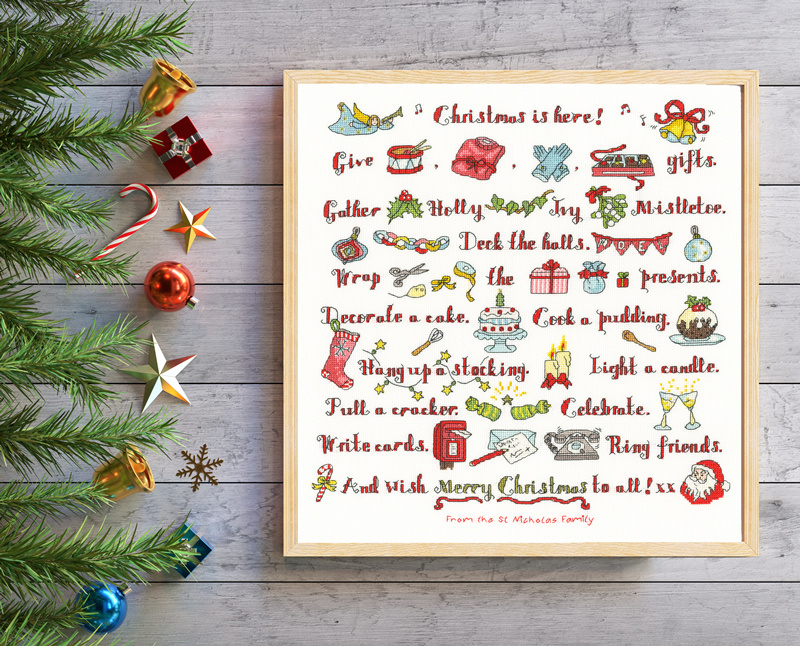 Christmas is here!
Give , , , gifts.
Gather Holly Ivy Mistletoe.
Deck the halls. NOEL
Wrap the presents.
Decorate a cake. Cook a pudding.
Hang up a stocking. Light a candle.
Pull a cracker. Celebrate.
Write cards. Ring friends.
And wish Merry Christmas to all! xx
From the St Nicholas Family